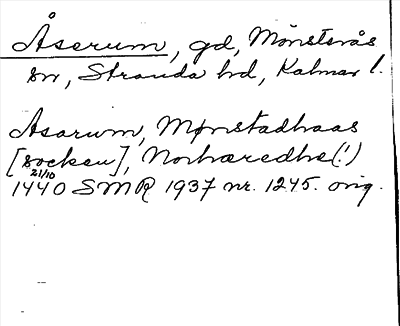 Åserum, gd, Mönsterås
sn, Stranda hd, Kalmar l.
Asarum, Mønstadhaas
[socken], Norhæredhe(!)
1440 21/10 SMR 1937 nr. 1245. orig.